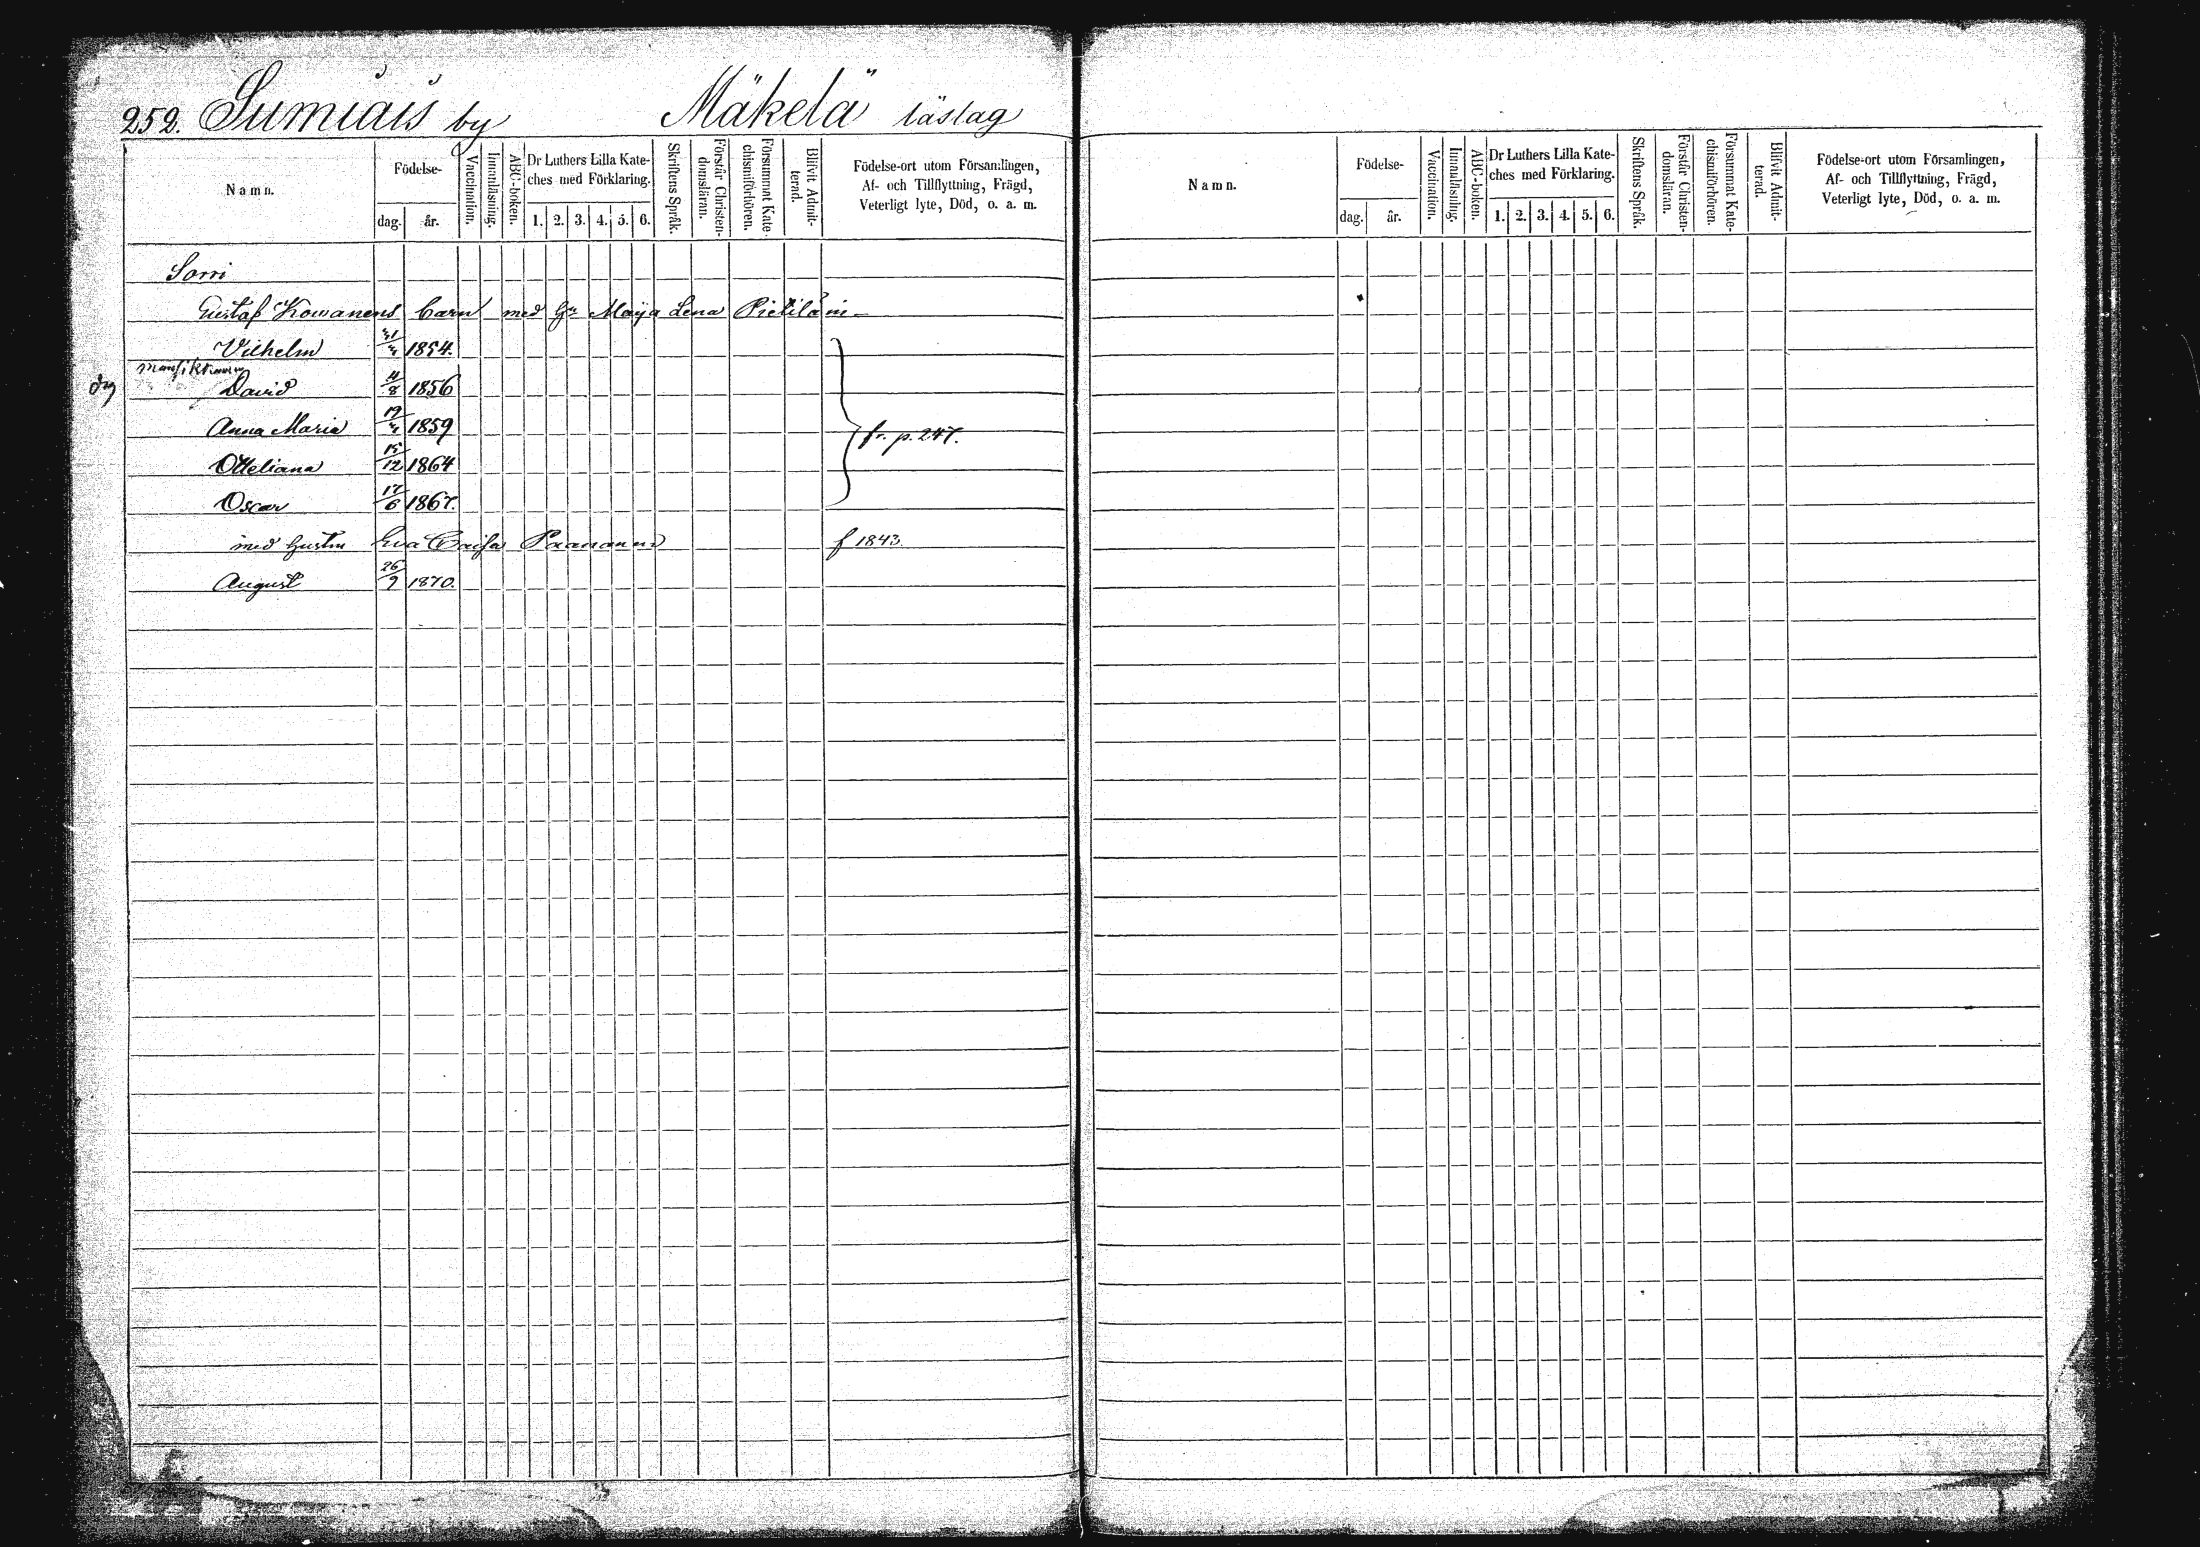 252. Sumiais by Mäkelä läslag
Namn. Födelse- dag. år. Vaccination. Innanläsning. ABC-boken. Dr Luthers Lilla Kate-ches med Förklaring. 1. 2. 3. 4. 5. 6. Skriftens Språk. Förstår Christen-domsläran. Försummat Kate-chismiförhören. Blifvit Admit-terad. Födelse-ort utom Församlingen, Af- och Tillflyttning, Frägd, Veterligt lyte, Död, o. a. m.
Sorri
Gustaf Kowanens barn med Maija Lena Pietiläin
Vilhelm 1854.
David 4/8 1856
Anna Maria 1859
fr. p. 247.
Otteliana 15/12 1864
Oscar 17/6 1867.
med hustru Eva Caisa Paananen f 1843.
August 26/9 1870.
Namn. Födelse- dag. år. Vaccination. Innanläsning. ABC-boken. Dr Luthers Lilla Kate-ches med Förklaring. 1. 2. 3. 4. 5. 6. Skriftens Språk. Förstår Christen-domsläran. Försummat Kate-chismiförhören. Blifvit Admit-terad. Födelse-ort utom Församlingen, Af- och Tillflyttning, Frägd, Veterligt lyte, Död, o. a. m.